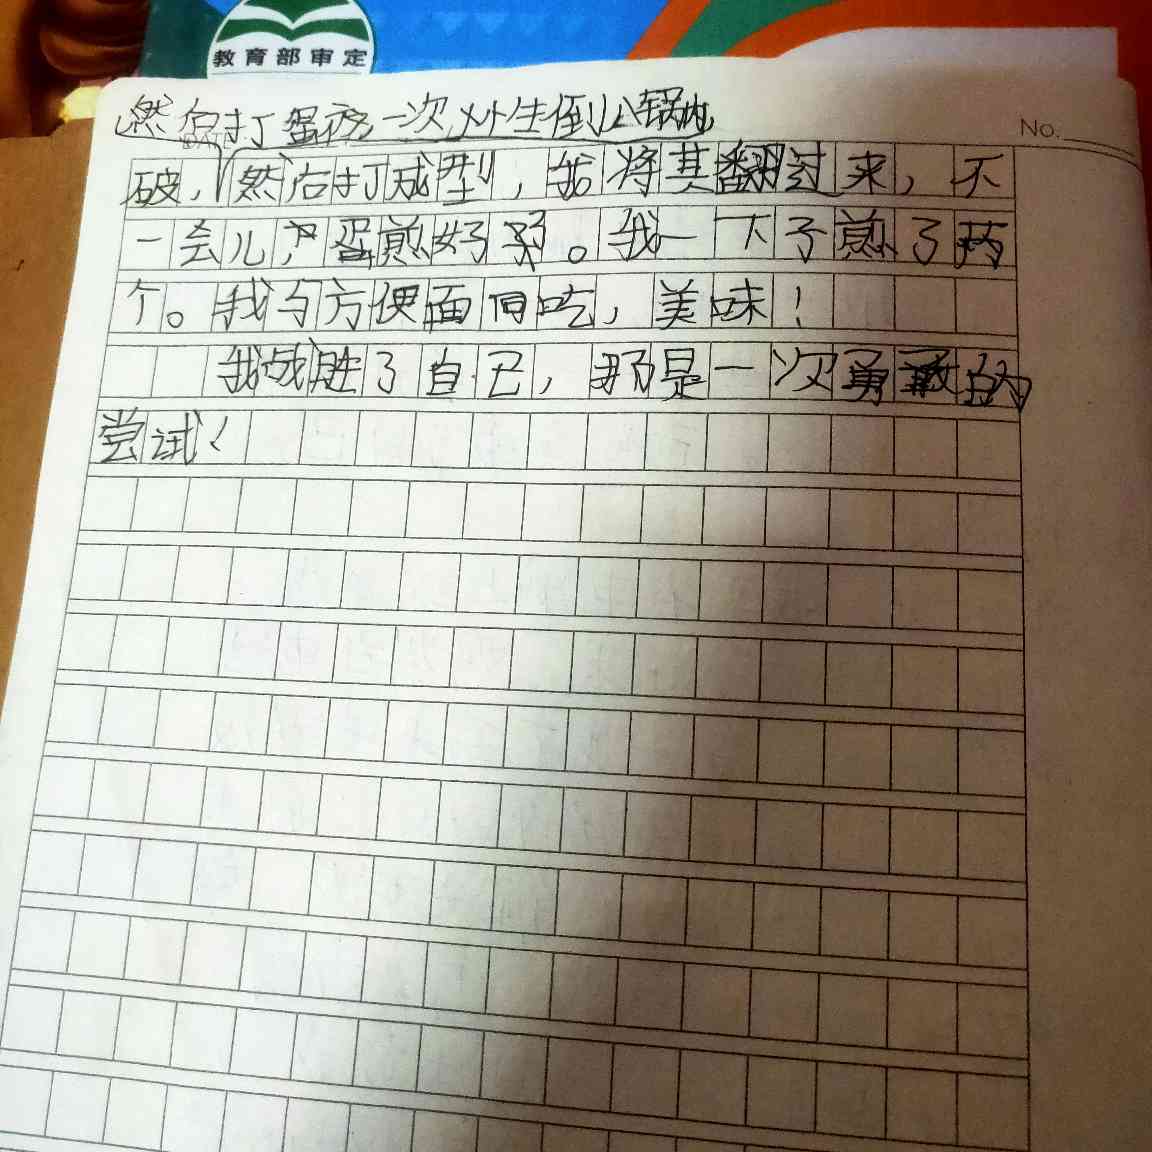 教育部审定
No.
DATE
然后打蛋液一次性倒入锅内
破，然后打成型，我将其翻过来，不
一会儿，蛋煎好了。我一下子煎了两
个。我与方便面同吃，美味！
我战胜了自己，那是一次勇敢的
尝试！